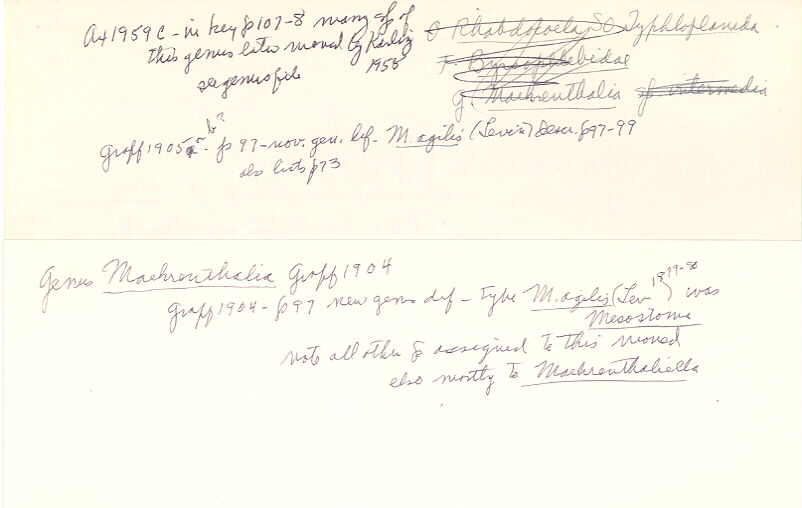 Ax 1959 c - in key p 107-8 many sp of
this genus later moved by Karling
1955
see genus file
O Rhabdocoela, SO Typhloplanida
F. Byrsophlebidae
G. Maehrenthalia sp intermedia
Graff 1905 b? p 97 - nov. gen. def. M. agilis (Levin) descr. p97-99
also lists p73
Genus Maehrenthalia Graff 1904
Graff 1904 - p97 new genus def - type M. agilis (Lev 1879-80) was
Mesostoma
note all other sp assigned to this moved
else mostly to Maehrenthaliella